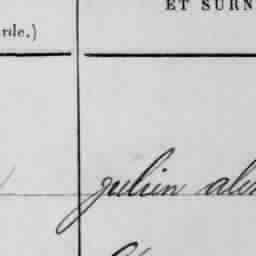 ET SURN
rile.)
julien alex